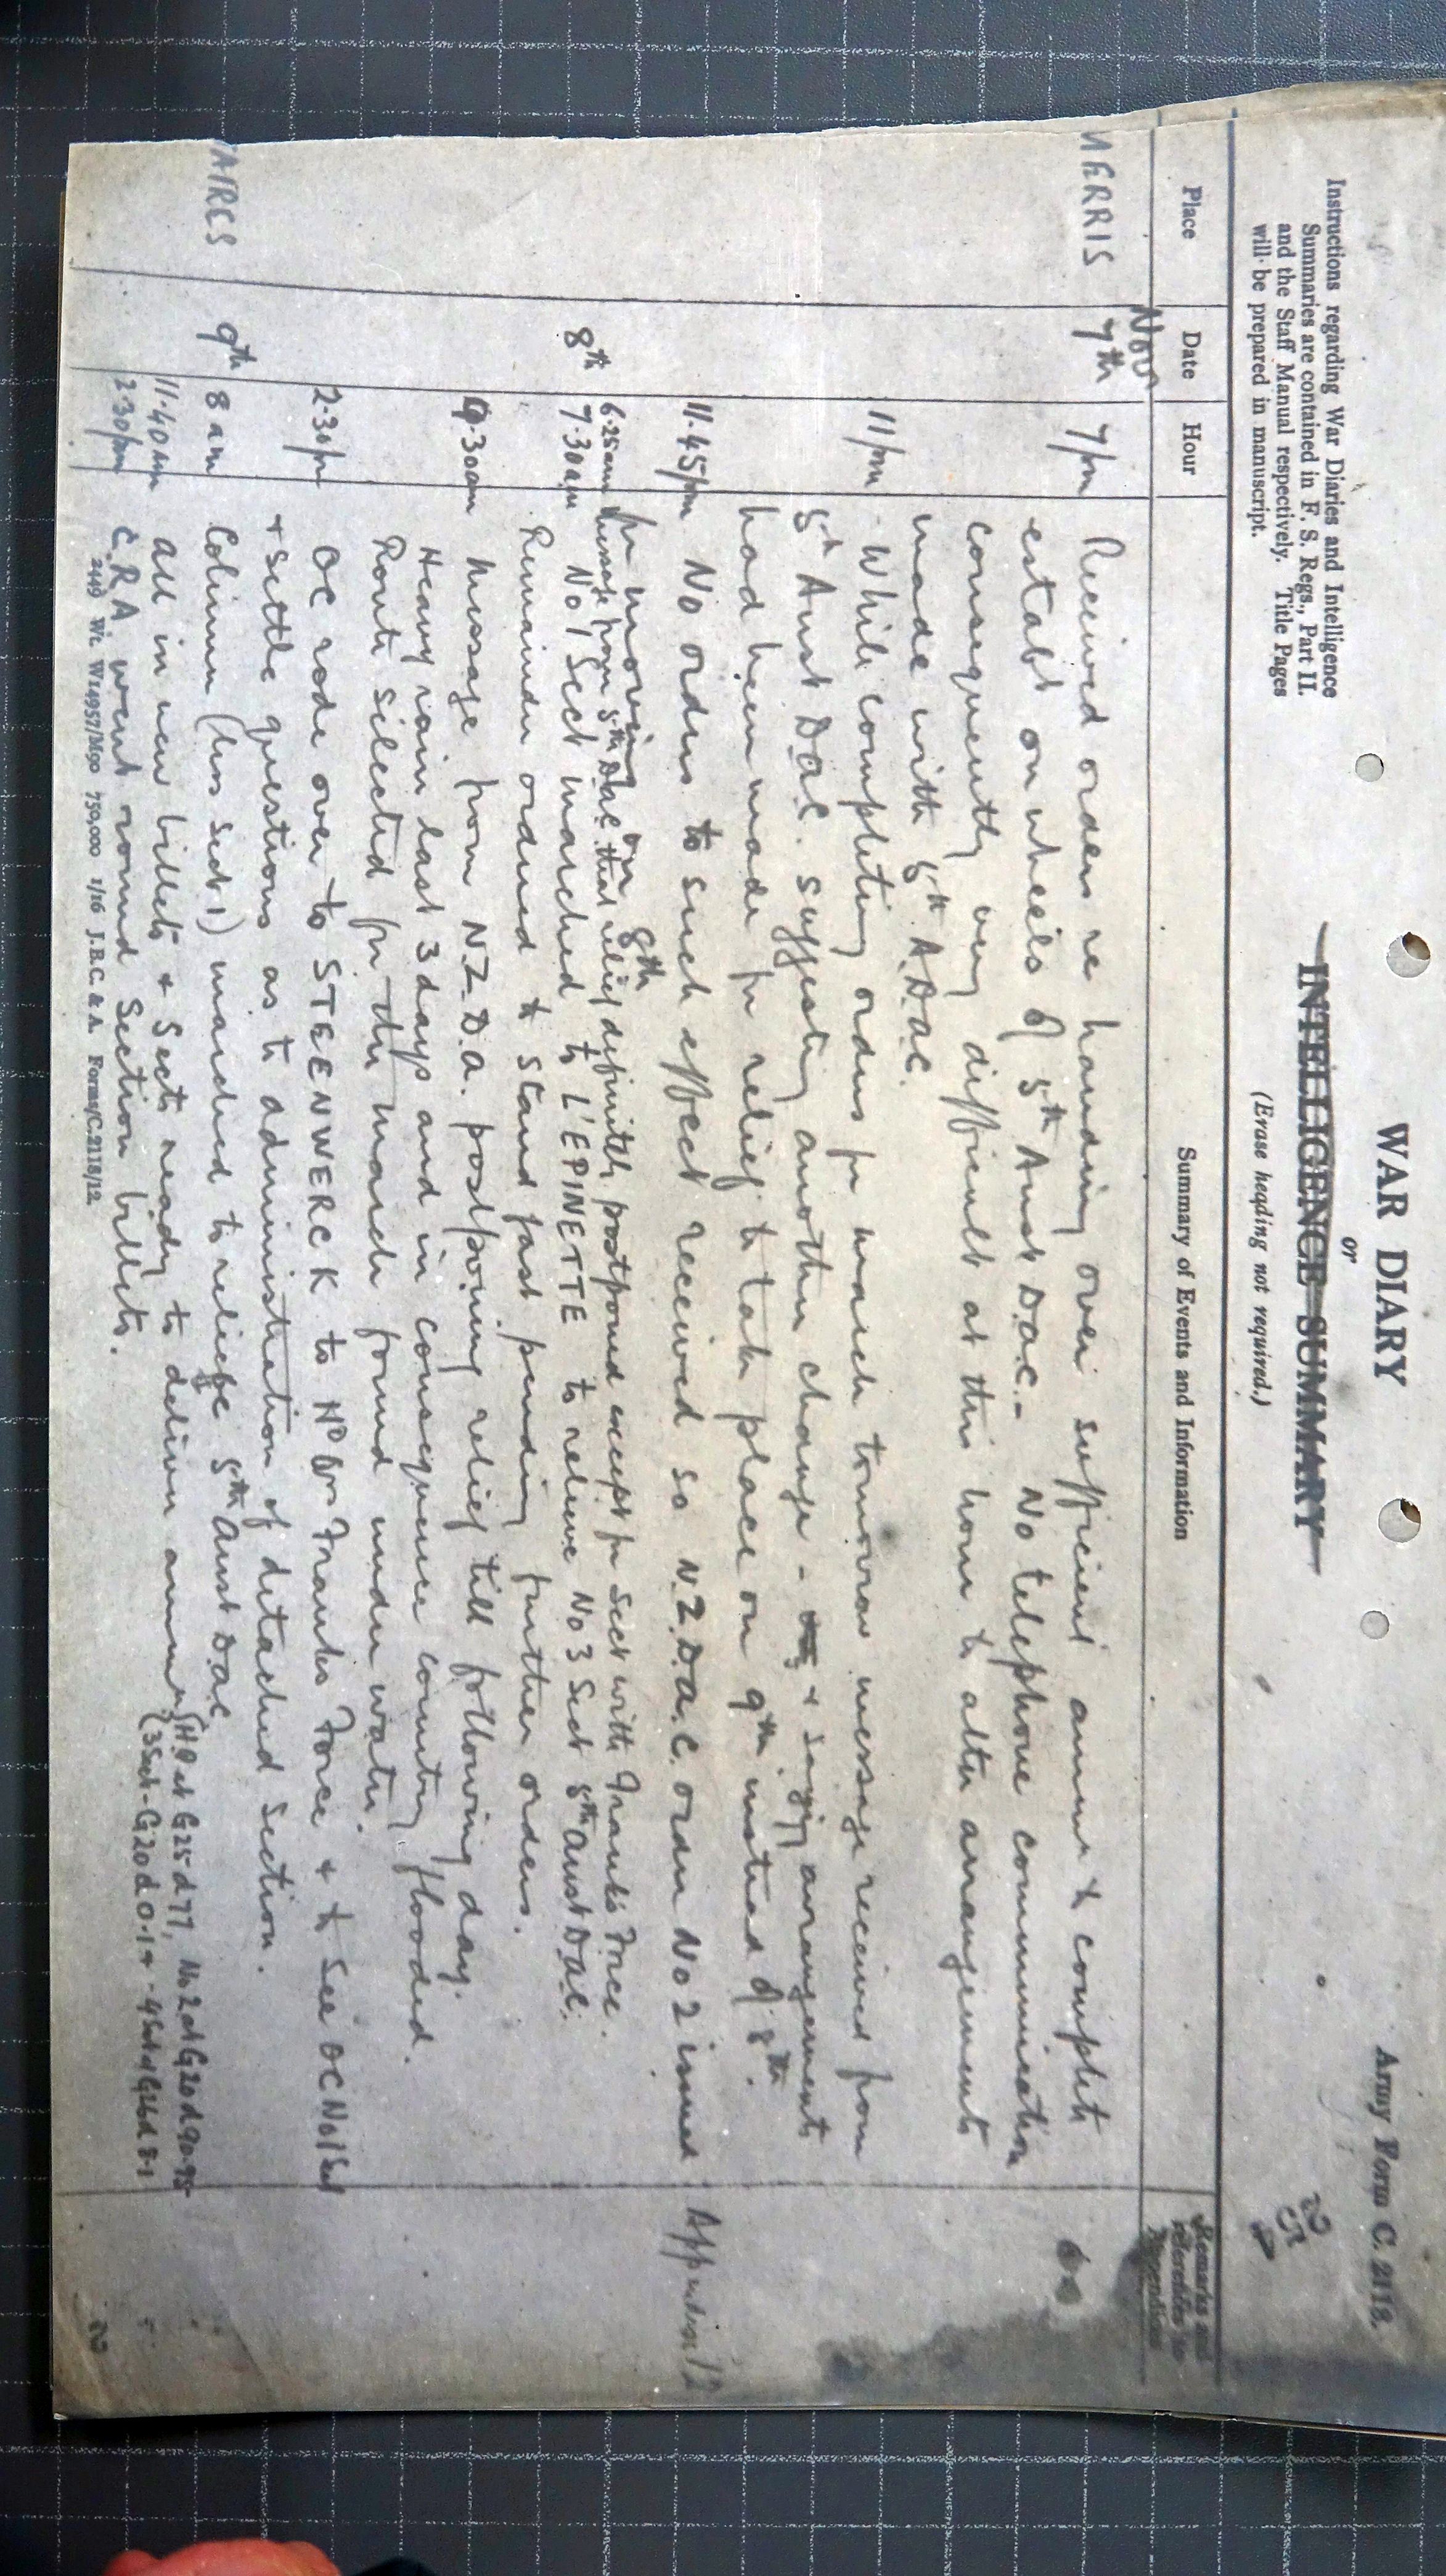 Army Form C. 2118.
WAR DIARY
or
INTELLIGENCE SUMMARY
(Erase heading not required.)
Instructions regarding War Diaries and Intelligence
Summaries are contained in F. S. Regs., Part II.
and the Staff Manual respectively. Title Pages
will be prepared in manuscript.
Place Date Hour Summary of Events and Information Remarks and references to Appendices
Nov
MERRIS 7th 7pm Received orders re handing over sufficient ammn to complete
establt on wheels of 5th Aust D.A.C. - No telephone communication
consequently very difficult at this hour to alter arrangements
made with 5th A.D.A.C.
11pm - While completing orders for march tomorrow message received from
5th Aust D.A.C. suggesting another change - + saying arrangements
had been made for relief to take place on 9th instead of 8th.
11.45pm No orders to such effect received so N.Z.D.A.C. order No 2 issued Appendix 12
for moving on 8th
6.25am Message from 5th DAC that relief definitely postponed except for Sect with Franks Force.
8th 7.30am No 1 Sect marched to L'EPINETTE to relieve No 3 Sect 5th Aust DAC.
Remainder ordered to stand fast pending further orders.
9.30am Message from N.Z.D.A. postponing relief till following day.
Heavy rain last 3 days and in consequence country flooded.
Route selected for the march found under water.
2.30pm OC rode over to STEENWERCK to Franks Force + to see OC No 1 Sect
+ settle questions as to administration of detached Section.
9th 8am Column (less Sect 1) marched to relieve 5th Aust DAC
11.40am All in new billets + Sects ready to deliver ammn {HQ at G25 d 77, No 2 at G20 d 90.95
{3 Sect - G20 d 0.1 + - 4 Sect d G26 d 8.1
2.30pm C.R.A. went round Section billets.
2449 Wt. W14957/M90 750,000 1/16 J.B.C. & A. Forms/C.2118/12.